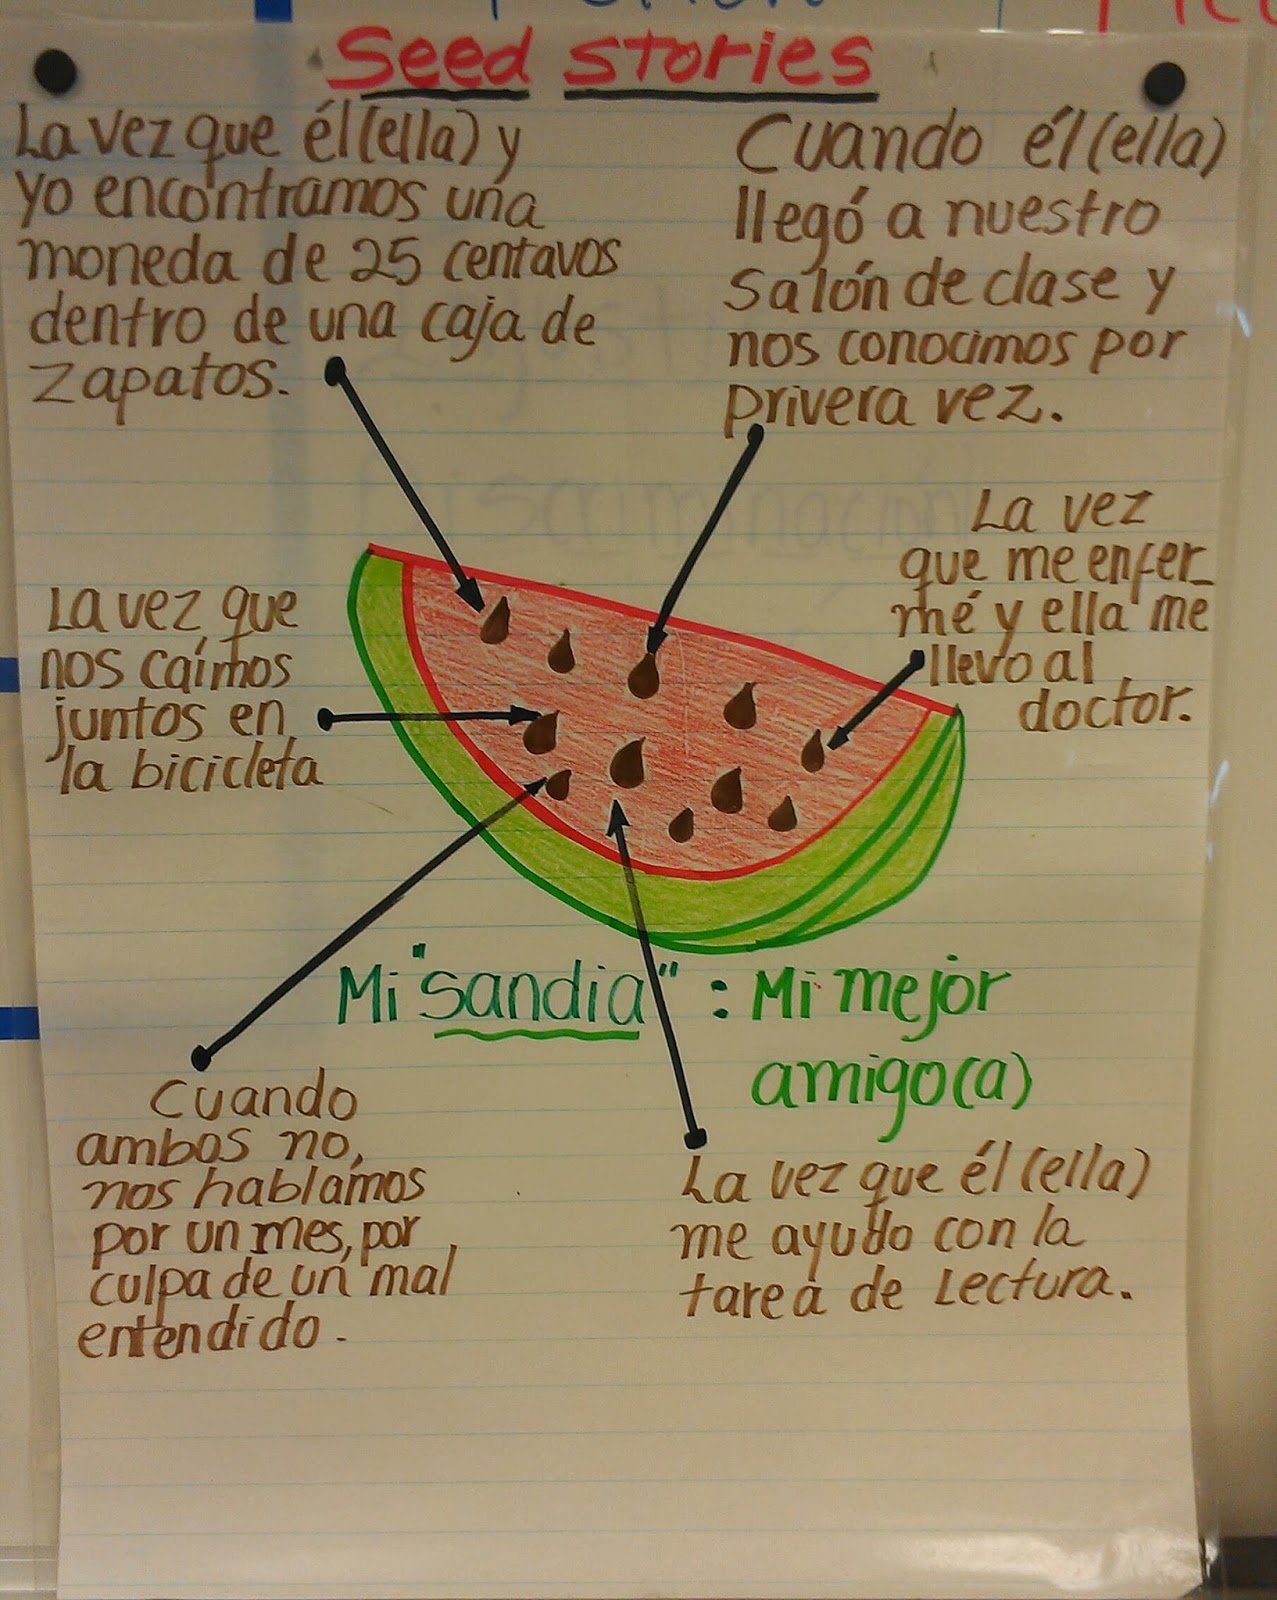 Seed stories
La vez que él(ella) y
yo encontramos una
moneda de 25 centavos
dentro de una caja de
zapatos.
Cuando él(ella)
llegó a nuestro
salón de clase y
nos conocimos por
privera vez.
La vez
que me enfer_
mé y ella me
llevo al
doctor.
La vez que
nos caímos
juntos en
la bicicleta
Mi "sandia" : Mi mejor
amigo(a)
Cuando
ambos no,
nos hablamos
por un mes, por
culpa de un mal
entendido.
La vez que él (ella)
me ayudo con la
tarea de Lectura.